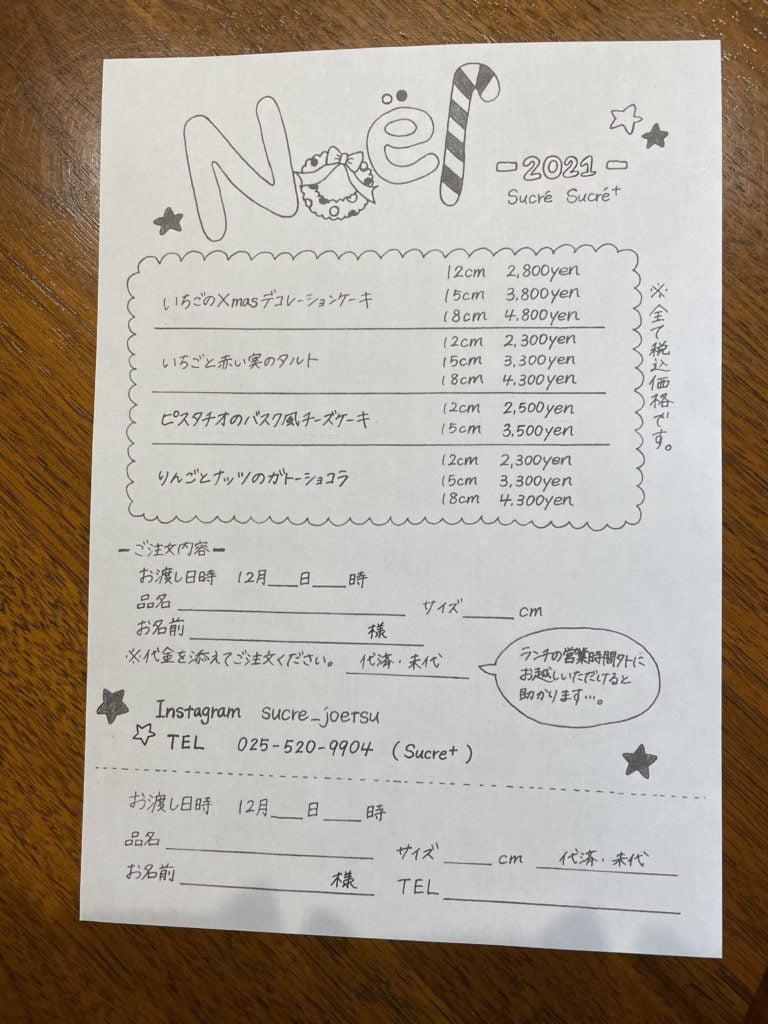 Noël
-2021-
Sucré Sucré+
いちごのXmasデコレーションケーキ
12cm 2,800yen
15cm 3,800yen
18cm 4,800yen
いちごと赤い実のタルト
12cm 2,300yen
15cm 3,300yen
18cm 4,300yen
ピスタチオのバスク風チーズケーキ
12cm 2,500yen
15cm 3,500yen
りんごとナッツのガトーショコラ
12cm 2,300yen
15cm 3,300yen
18cm 4,300yen
※全て税込価格です。
-ご注文内容-
お渡し日時 12月___日___時
品名 サイズ cm
お名前 様
※代金を添えてご注文ください。 代済・未代
ランチの営業時間外に
お越しいただけると
助かります…。
Instagram sucre_joetsu
TEL 025-520-9904 (Sucre+)
お渡し日時 12月___日___時
品名
サイズ cm 代済・未代
お名前 様
TEL